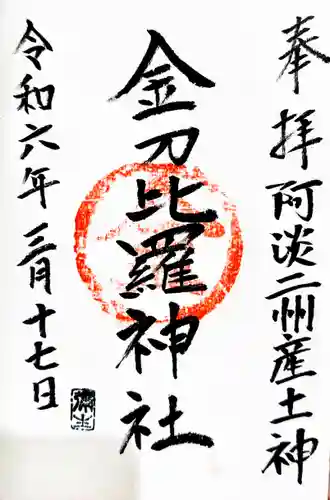 奉拝 阿淡二州産土神
金刀比羅神社
令和六年三月十七日